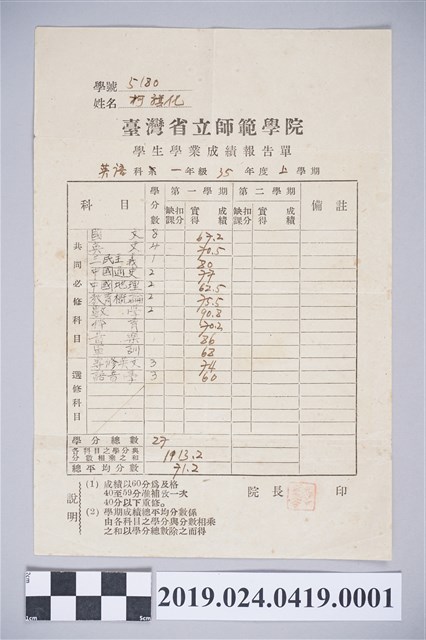 學號 5180
姓名 柯旗化
臺灣省立師範學院
學生學業成績報告單
英語科第一年級35年度上學期
科目 學分數 第一學期 第二學期 備註
缺課 扣分 實得 成績 缺課 扣分 實得 成績
共同必修科目
國文 8 67.2
英文 4 70.5
三民主義 1 80
中國通史 2 77
中國地理 2 62.5
教育概論 2 75.5
數學 2 90.8
體育 70.2
音樂 86
軍訓 68
選修科目
英文 3 74
語音學 3 60
學分總數 27
各科目之學分與分數相乘之和 1913.2
總平均分數 71.2
說明
(1) 成績以60分為及格
40至59分准補考一次
40分以下重修。
(2) 學期成績總平均分數係
由各科目之學分與分數相乘
之和以學分總數除之而得
院長 印
2cm 5cm
2019.024.0419.0001